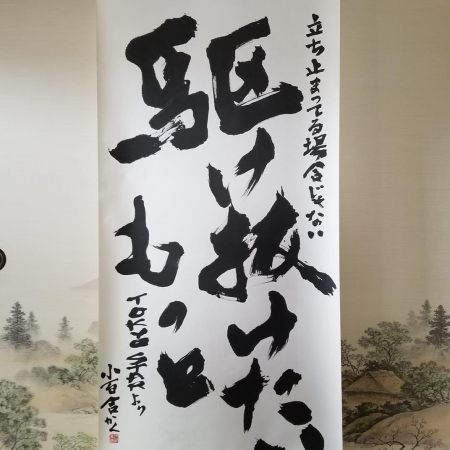 立ち止まってる場合じゃない
駆け抜けたい
もっと
より
小百合かく